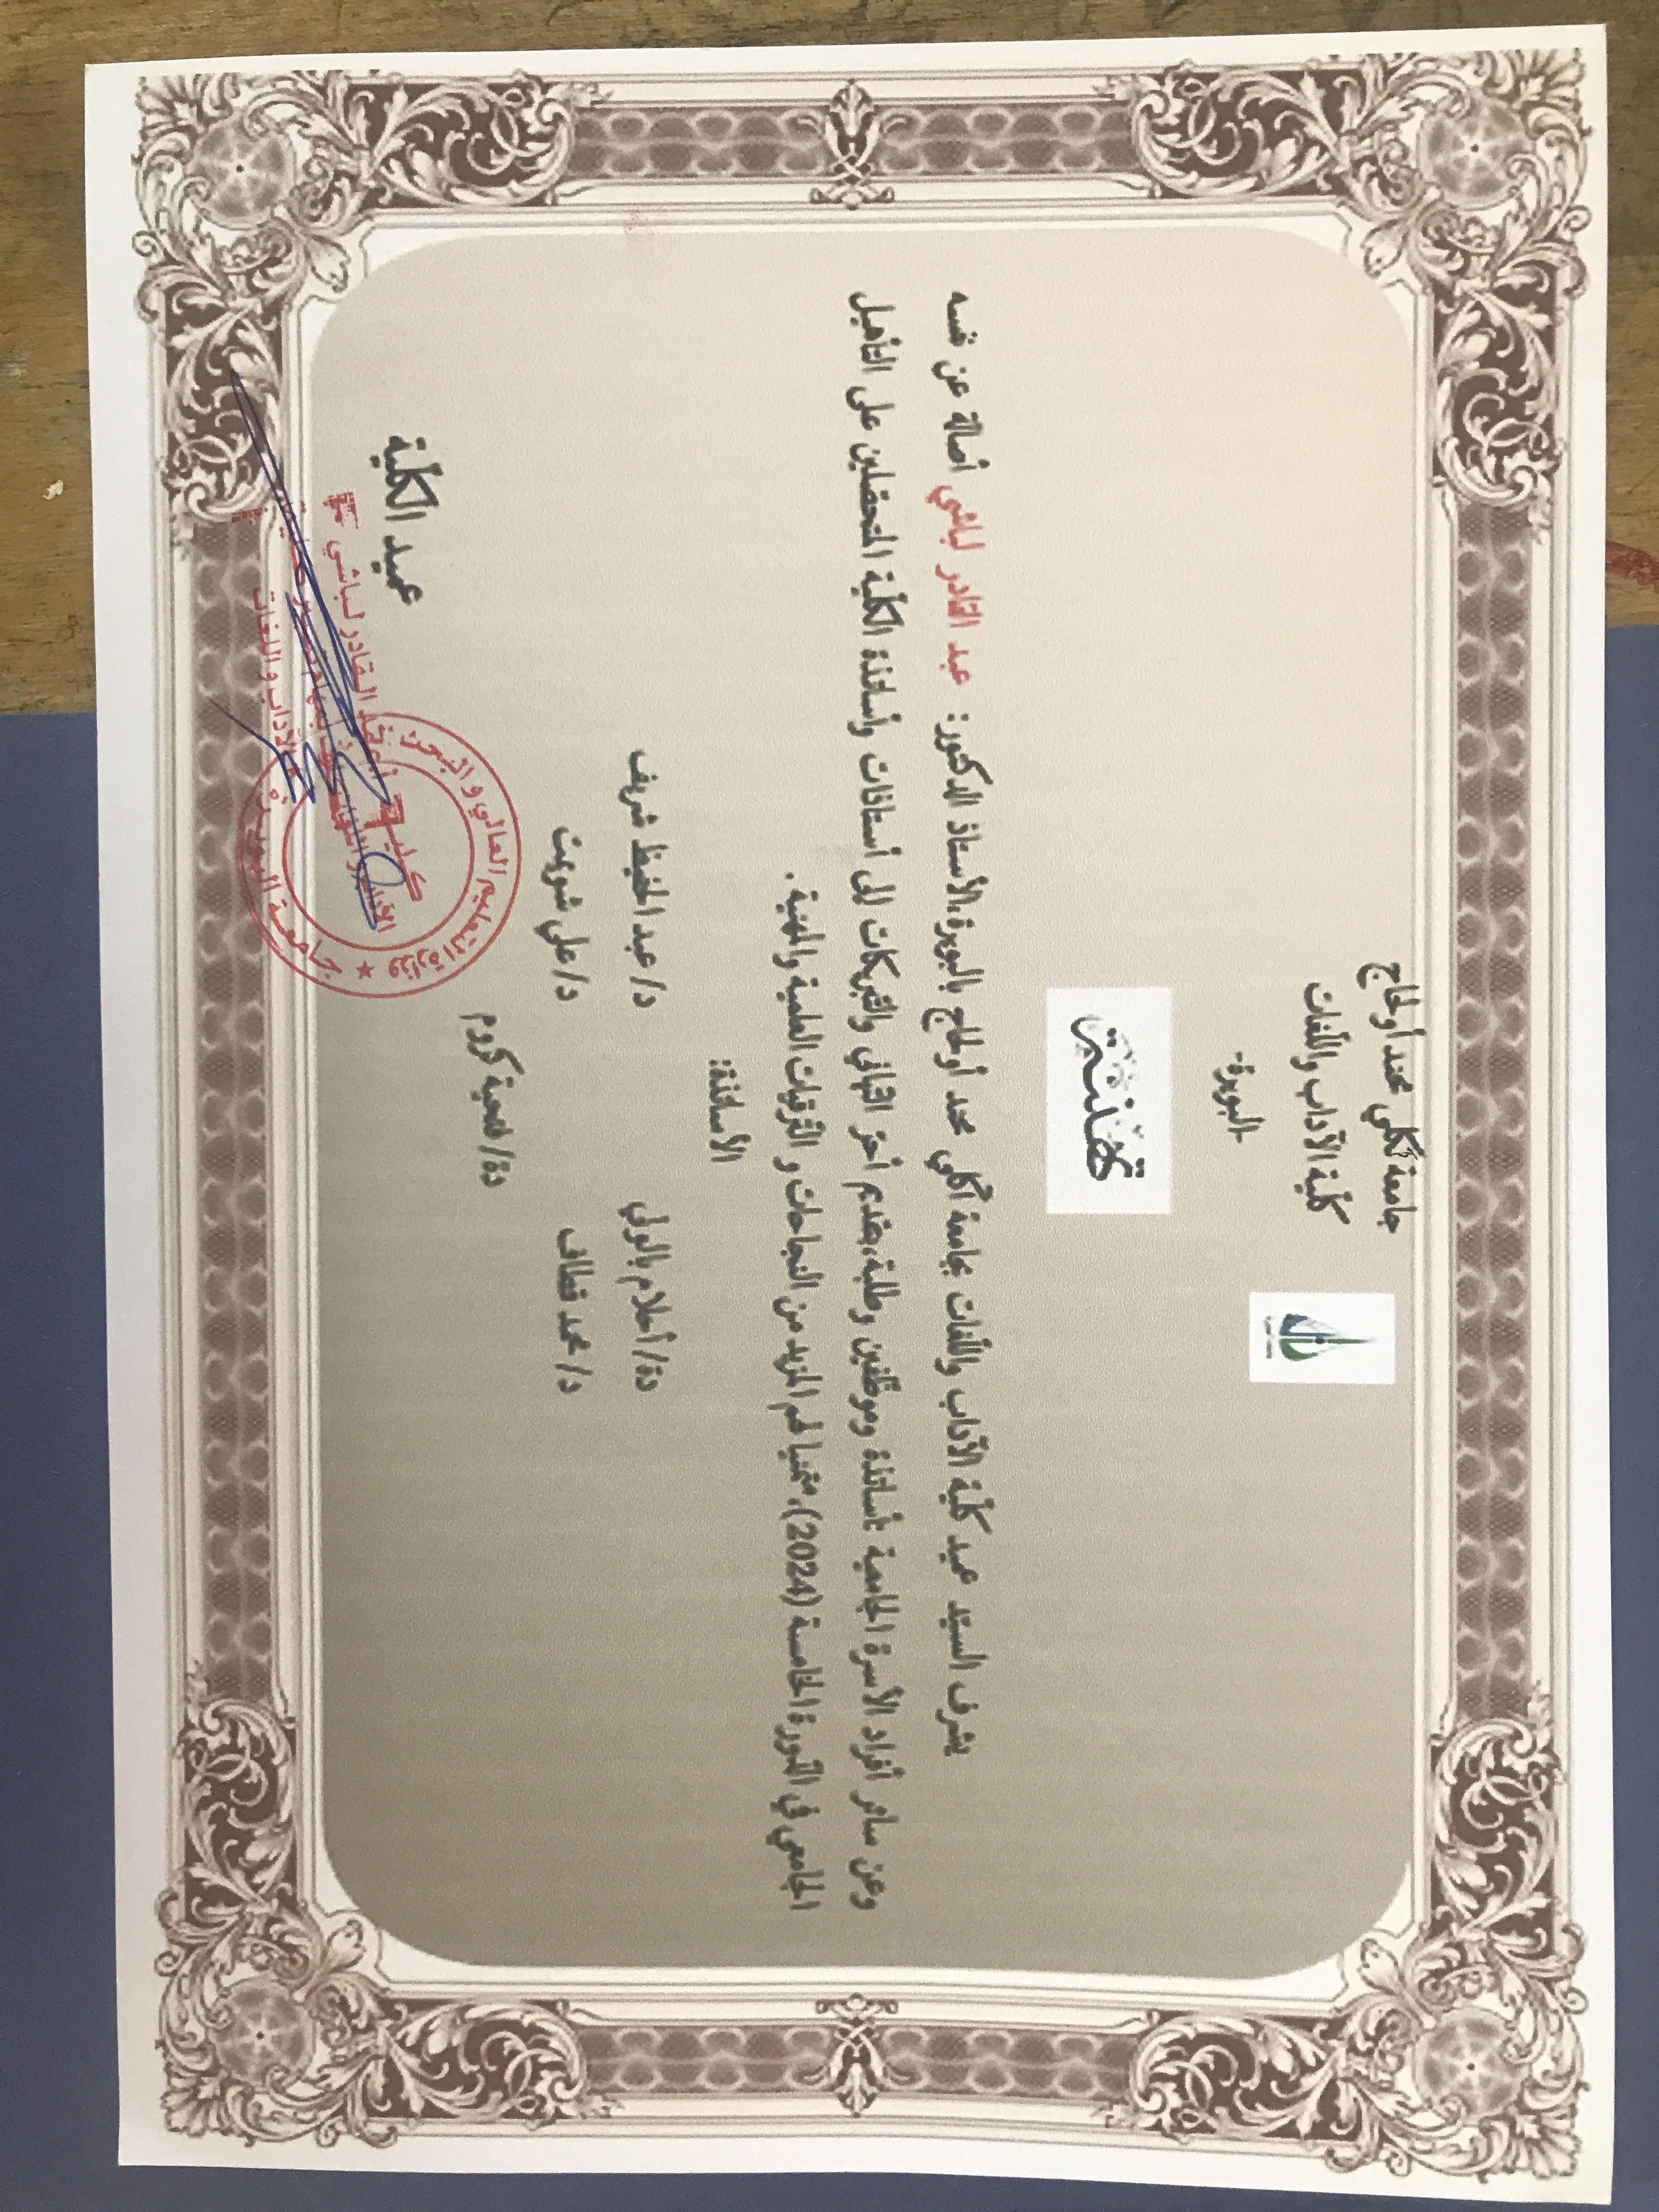 جامعة آكلي محند أولحاج
كليّة الآداب واللّغات
-البويرة-
تهنئة
يشرف السيّد عميد كليّة الآداب واللّغات بجامعة آكلي محند أولحاج بالبويرة،الأستاذ الدكتور: عبد القادر لباشي أصالة عن نفسه
وعن سائر أفراد الأسرة الجامعية أساتذة وموظّفين وطلبة،بتقديم أحرّ التّهاني والتّبريكات إلى أستاذات وأساتذة الكلّية المتحصّلين على التأهيل
الجامعي في الدّورة الخامسة (2024)، متمنيا لهم المزيد من النجاحات و الترقيات العلمية والمهنية.
الأساتذة:
دة/ أحلام بالولي د/ عبد الحفيظ شريف
د/ محمد قطاف د/ علي شوعيت
دة/ فتحية كروم
عميد الكليّة
عبد القادر لباشي
الآداب واللغات
وزارة التعليم العالي و البحث
كلية
جامعة البويرة